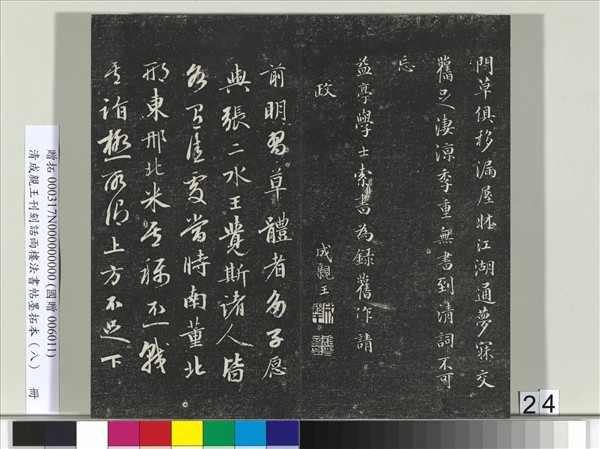 門草俱移漏屋牀江湖通夢寐交
舊足淒涼季重無書到清詞不可
忘
益亭學士索書為錄舊作請
政
成親王
前明習草體者多子愿
與張二水王覺斯諸人皆
有虛處當時南董北
邢東邢北米之稱不一
詣極所得上方不足下
贈拓 000317N000000000 (國贈 006011)
清成親王刊刻話雨樓法書帖墨拓本（八） 冊
24